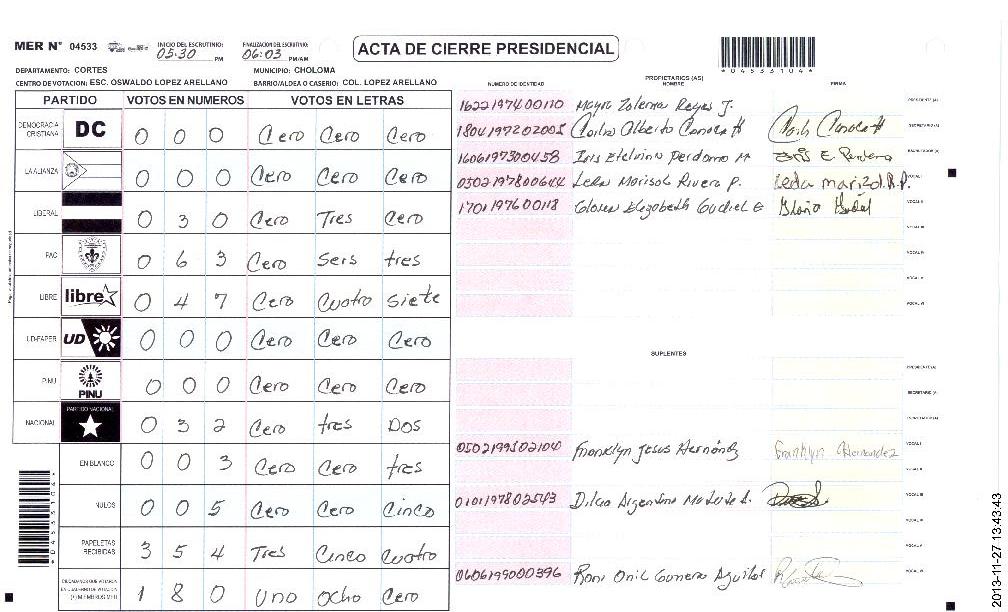 MER N° 04533 INICIO DEL ESCRUTINIO: 05:30 PM FINALIZACION DEL ESCRUTINIO: 06:03 PM/AM
ACTA DE CIERRE PRESIDENCIAL
*04533104*
DEPARTAMENTO: CORTES MUNICIPIO: CHOLOMA
CENTRO DE VOTACION: ESC. OSWALDO LOPEZ ARELLANO BARRIO/ALDEA O CASERIO: COL. LOPEZ ARELLANO
PARTIDO VOTOS EN NUMEROS VOTOS EN LETRAS
DEMOCRACIA CRISTIANA DC 0 0 0 Cero Cero Cero
LA ALIANZA 0 0 0 Cero Cero Cero
LIBERAL 0 3 0 Cero Tres Cero
PAC 0 6 3 Cero Seis tres
LIBRE libre 0 4 7 Cero Cuatro Siete
UD-FAPER UD 0 0 0 Cero Cero Cero
PINU PINU 0 0 0 Cero Cero Cero
NACIONAL PARTIDO NACIONAL 0 3 2 Cero tres Dos
EN BLANCO 0 0 3 Cero Cero tres
NULOS 0 0 5 Cero Cero Cinco
PAPELETAS RECIBIDAS 3 5 4 Tres Cinco Cuatro
CIUDADANOS QUE VOTARON EN CUADERNO DE VOTACION (+) MIEMBROS MER 1 8 0 Uno Ocho Cero
PROPIETARIOS (AS)
NUMERO DE IDENTIDAD NOMBRE FIRMA
1622197400110 Reyes J. PRESIDENTE (A)
1804197202005 Carlos Alberto SECRETARIO (A)
1606197300458 Iris Perdomo M Iris E. Perdomo ESCRUTADOR (A)
0502197800644 Leda Marisol Rivera P. Leda marizol.R.P. VOCAL I
1701197600118 Elizabeth Gudiel E VOCAL II
VOCAL III
VOCAL IV
VOCAL V
VOCAL VI
SUPLENTES
PRESIDENTE (A)
SECRETARIO (A)
ESCRUTADOR (A)
0502199302104 Franklyn Jesus Hernández Franklyn Hernandez VOCAL I
VOCAL II
0101197802543 Dilcia Argentina VOCAL III
VOCAL IV
VOCAL V
0606199000396 Roni Onil Aguilar VOCAL VI
*04533104*
2013-11-27 13:43:43